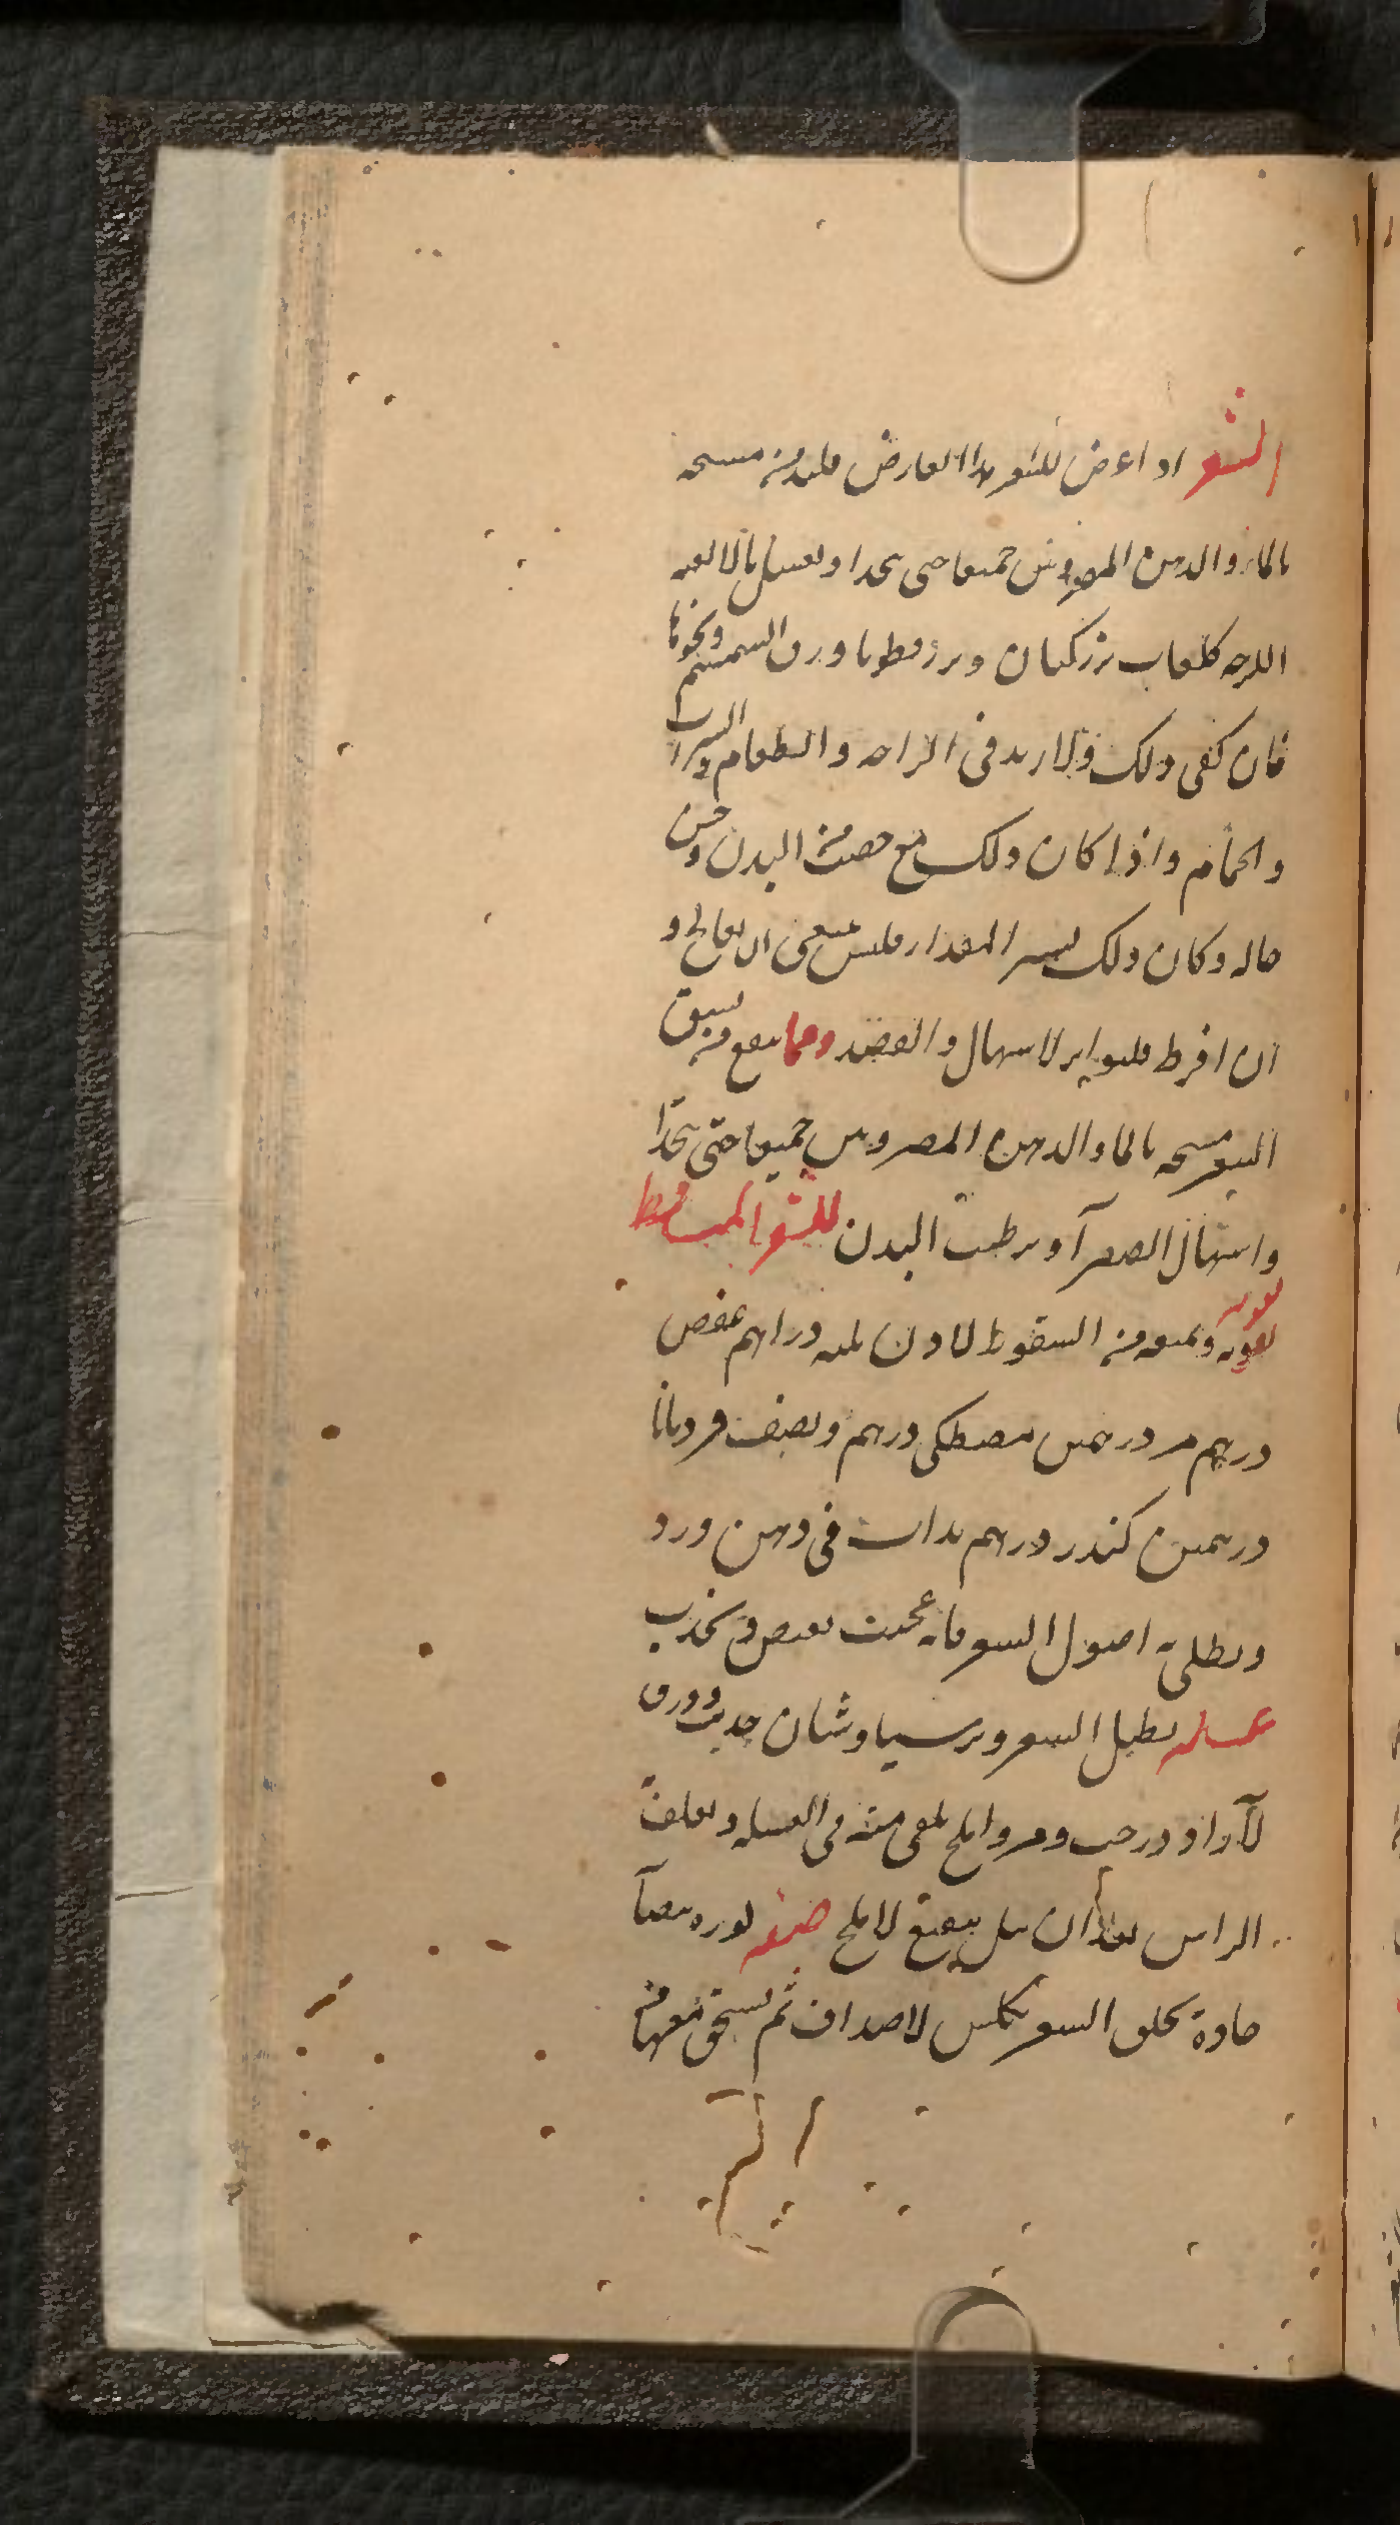 الشعر اذا عرض للشعر هذا العارض فليدمن مسحه
بالماء والدهن المضروبين جميعا حتى يتحدا ويغسل بالالعبه
اللزجه كلعاب بزركتان وبزرقطونا وورق السمسم ونحوها
فان كفى ذلك والا زيد فى الراحه والطعام والشراب
والحمام واذا كان ذلك مع خصب البدن وحسن
حاله وكان ذلك يسير المقدار فليس ينبغى ان يعالج و
ان افرط فليواتر الاسهال والفصد ومما ينفع من تشقق
الشعر مسحه بالماء والدهن المضروبين جميعا حتى يتحدا
واسهال الصفرآ وترطيب البدن للشعر المتساقط
يقويه ويمنعه من السقوط لادن ثلثه دراهم عفص
درهم مر درهمين مصطكى درهم ونصف قردمانا
درهمين كندر درهم يذاب فى دهن ورد
ويطلى به اصول الشعر فانه عجيب
غسله يطيل الشعر وبرسياوشان حديث وورق
لآزاددرخت ومر واملج يلقى منه فى الغسله ويغلف
الراس بعد ان يبل بنقيع الاملج صفه نوره بيضآ
حادة تحلق الشعر تكلس الاصداف ثم تسحق معها من